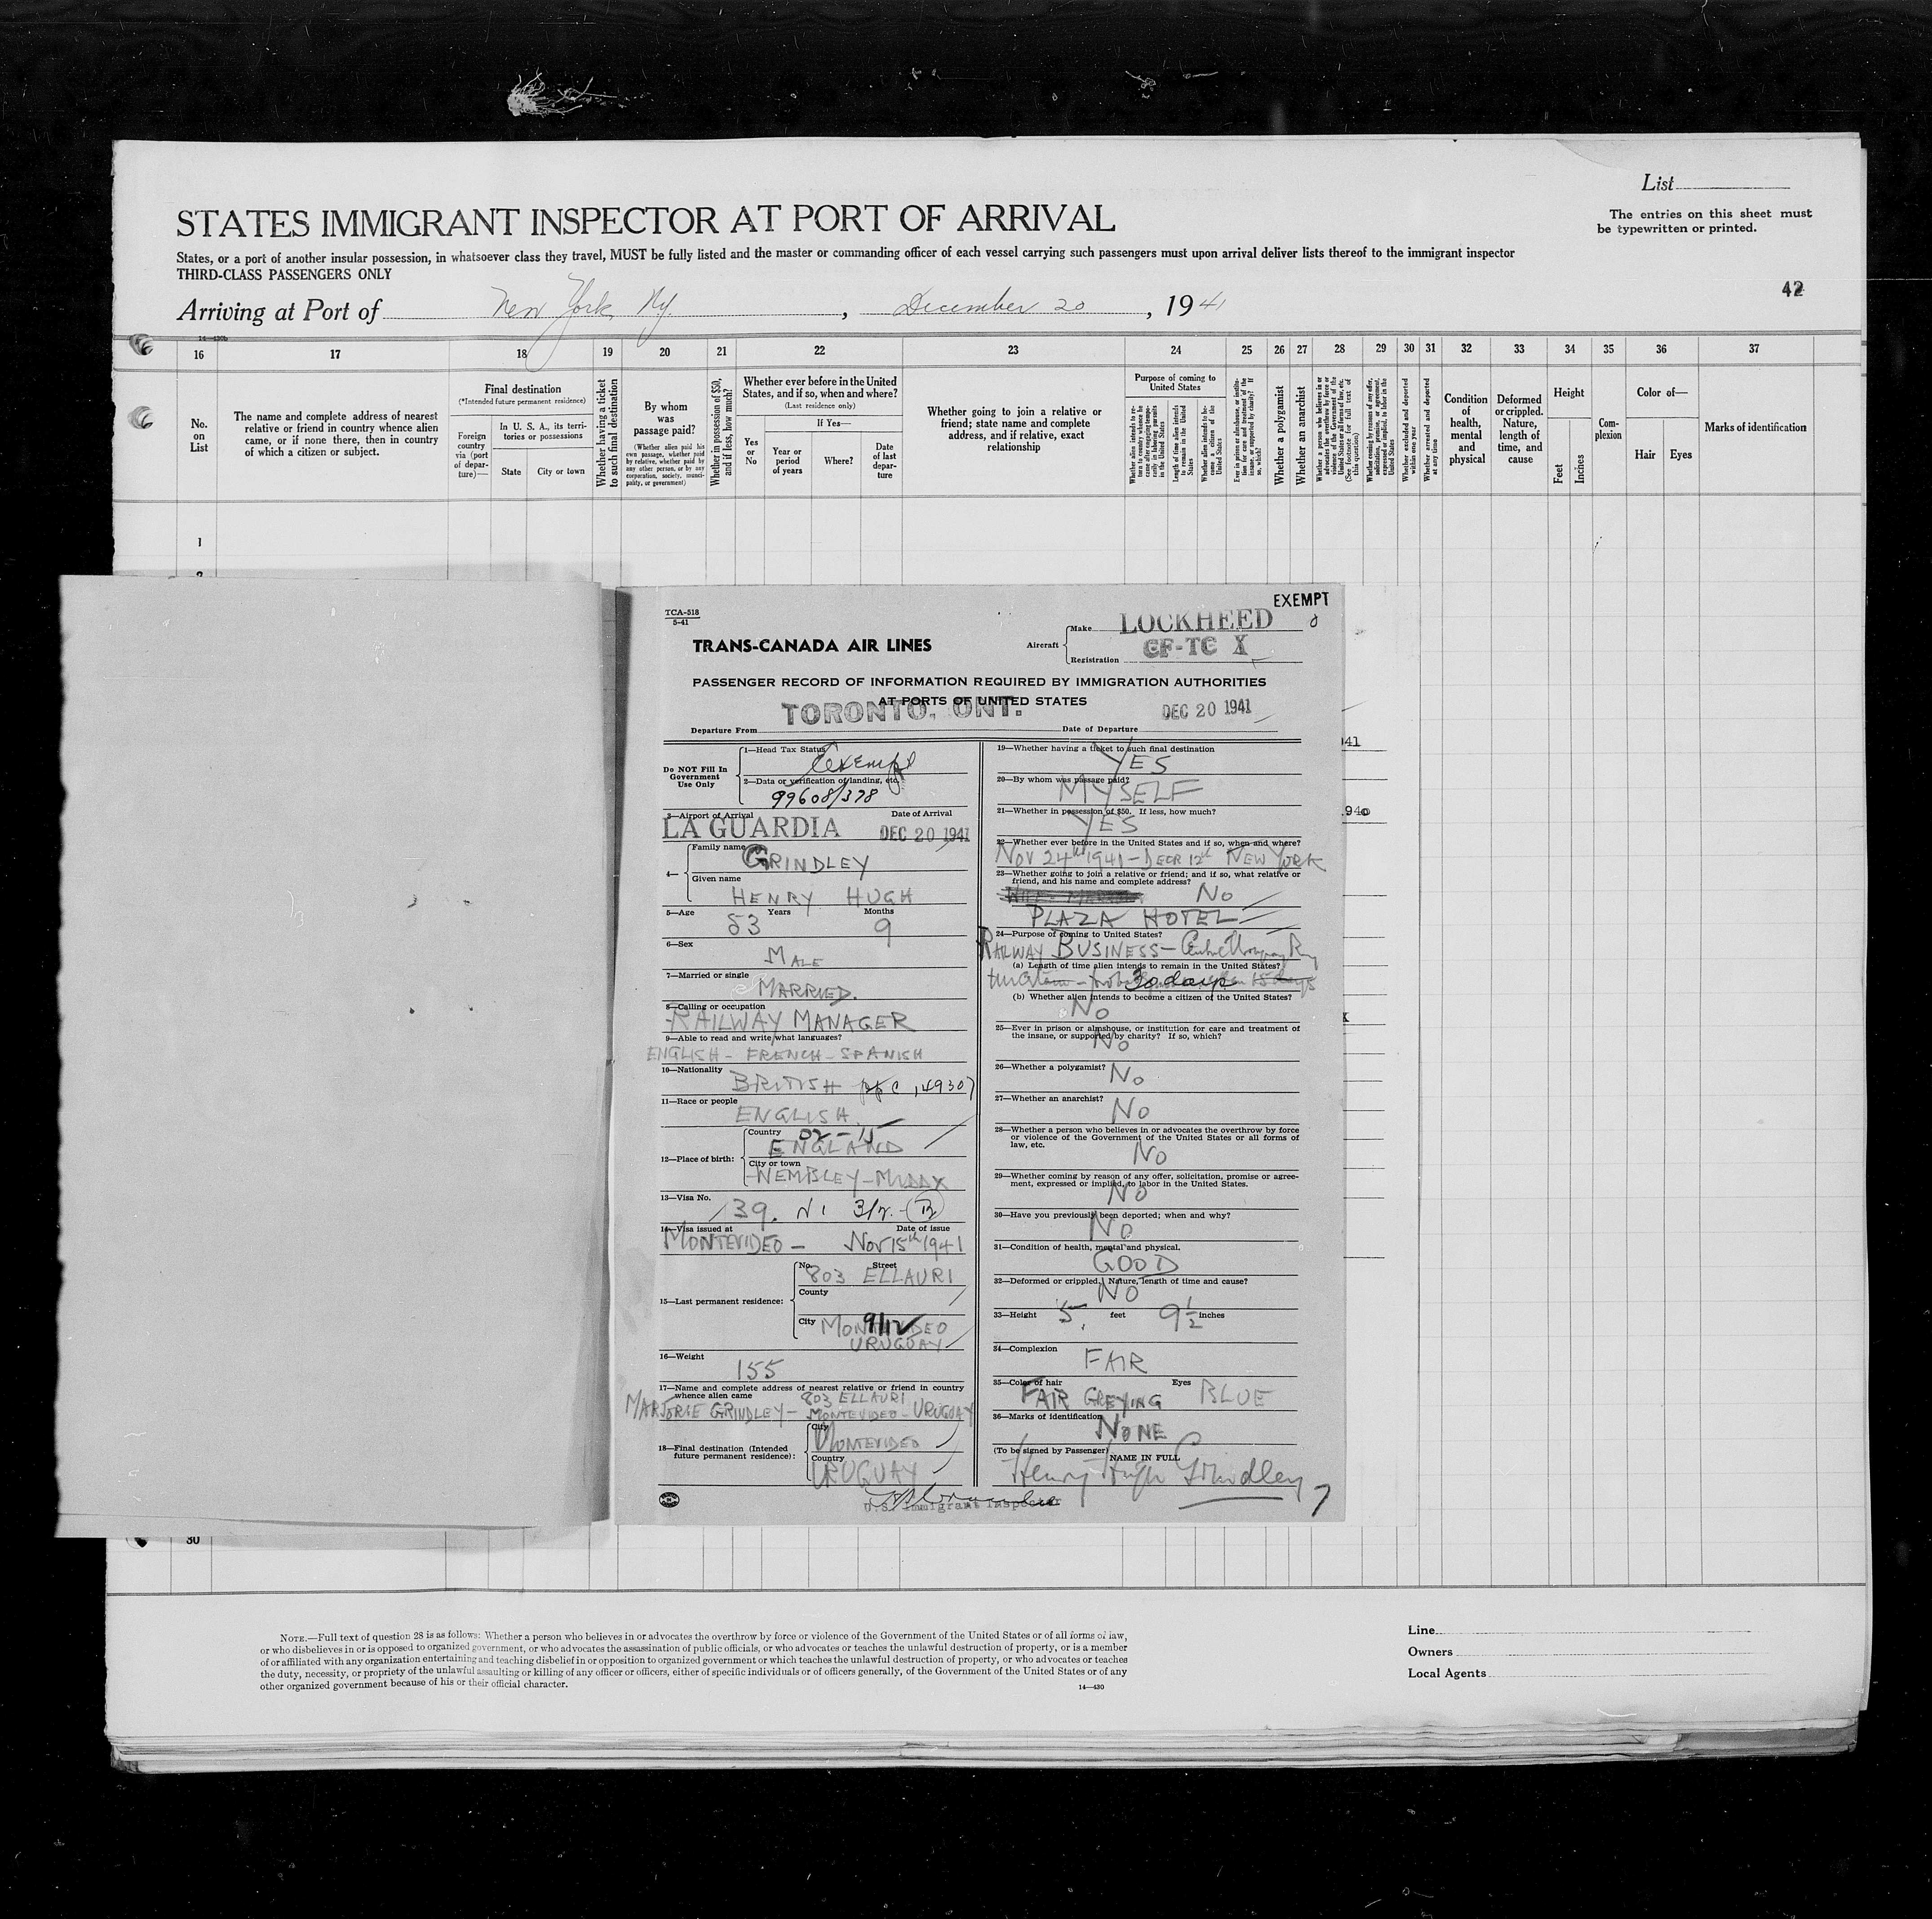 List
STATES IMMIGRANT INSPECTOR AT PORT OF ARRIVAL
The entries on this sheet must
be typewritten or printed.
States, or a port of another insular possession, in whatsoever class they travel, MUST be fully listed and the master or commanding officer of each vessel carrying such passengers must upon arrival deliver lists thereof to the immigrant inspector
THIRD-CLASS PASSENGERS ONLY
42
Arriving at Port of New York, Ny. , December 20 , 1941
16 17 18 19 20 21 22 23 24 25 26 27 28 29 30 31 32 33 34 35 36 37
No.
on
List
The name and complete address of nearest
relative or friend in country whence alien
came, or if none there, then in country
of which a citizen or subject.
Final destination
(*Intended future permanent residence)
Foreign
country
via (port
of depar-
ture)—
In U. S. A., its terri-
tories or possessions
State City or town
Whether having a ticket
to such final destination
By whom
was
passage paid?
(Whether alien paid his
own passage, whether paid
by relative, whether paid by
any other person, or by any
corporation, society, munici-
pality, or government)
Whether in possession of $50,
and if less, how much?
Whether ever before in the United
States, and if so, when and where?
(Last residence only)
Yes
or
No
If Yes—
Year or
period
of years
Where?
Date
of last
depar-
ture
Whether going to join a relative or
friend; state name and complete
address, and if relative, exact
relationship
Purpose of coming to
United States
Whether alien intends to re-
turn to country whence he
came after engaging tempo-
rarily in laboring pursuits
in the United States
Length of time alien intends
to remain in the United
States
Whether alien intends to be-
come a citizen of the
United States
Ever in prison or almshouse, or institu-
tion for care and treatment of the
insane, or supported by charity? If
so, which?
Whether a polygamist
Whether an anarchist
Whether a person who believes in or
advocates the overthrow by force or
violence of the Government of the
United States or all forms of law, etc.
(See footnote for full text of
this question)
Whether coming by reason of any offer,
solicitation, promise, or agreement,
expressed or implied, to labor in the
United States
Whether excluded and deported
within one year
Whether arrested and deported
at any time
Condition
of
health,
mental
and
physical
Deformed
or crippled.
Nature,
length of
time, and
cause
Height
Feet
Inches
Com-
plexion
Color of—
Hair Eyes
Marks of identification
1
2
TCA-518
5-41
EXEMPT
TRANS-CANADA AIR LINES
Aircraft
Make LOCKHEED
Registration CF-TC X
PASSENGER RECORD OF INFORMATION REQUIRED BY IMMIGRATION AUTHORITIES
AT PORTS OF UNITED STATES
Departure From TORONTO, ONT. Date of Departure DEC 20 1941
Do NOT Fill In
Government
Use Only
1—Head Tax Status Exempt
2—Data or verification of landing, etc.
99608/378
3—Airport of Arrival Date of Arrival
LA GUARDIA DEC 20 1941
4—
Family name GRINDLEY
Given name
HENRY HUGH
5—Age Years Months
53 9
6—Sex
MALE
7—Married or single
MARRIED.
8—Calling or occupation
RAILWAY MANAGER
9—Able to read and write what languages?
ENGLISH - FRENCH - SPANISH
10—Nationality
BRITISH
11—Race or people
ENGLISH.
12—Place of birth:
Country
ENGLAND
City or town
WEMBLEY - MIDDX
13—Visa No.
139.
14—Visa issued at Date of issue
MONTEVIDEO — NOV 15th 1941
15—Last permanent residence:
No. Street
803 ELLAURI
County
City MONTEVIDEO
9/12
URUGUAY
16—Weight
155
17—Name and complete address of nearest relative or friend in country
whence alien came 803 ELLAURI
MARJORIE GRINDLEY - MONTEVIDEO - URUGUAY
18—Final destination (Intended
future permanent residence):
City
MONTEVIDEO
Country
URUGUAY
19—Whether having a ticket to such final destination
YES
20—By whom was passage paid?
MYSELF
21—Whether in possession of $50. If less, how much?
YES
22—Whether ever before in the United States and if so, when and where?
NOV 24th 1941 - DECR 12th NEW YORK
23—Whether going to join a relative or friend; and if so, what relative or
friend, and his name and complete address?
NO
PLAZA HOTEL
24—Purpose of coming to United States?
RAILWAY BUSINESS -
(a) Length of time alien intends to remain in the United States?
30 days
(b) Whether alien intends to become a citizen of the United States?
NO
25—Ever in prison or almshouse, or institution for care and treatment of
the insane, or supported by charity? If so, which?
NO
26—Whether a polygamist? NO
27—Whether an anarchist? NO
28—Whether a person who believes in or advocates the overthrow by force
or violence of the Government of the United States or all forms of
law, etc.
NO
29—Whether coming by reason of any offer, solicitation, promise or agree-
ment, expressed or implied, to labor in the United States.
NO
30—Have you previously been deported; when and why?
NO
31—Condition of health, mental and physical.
GOOD
32—Deformed or crippled. Nature, length of time and cause?
NO
33—Height 5 feet 9½ inches
34—Complexion
FAIR
35—Color of hair Eyes
FAIR GREYING BLUE
36—Marks of identification
NONE
(To be signed by Passenger) NAME IN FULL
Henry Hugh Grindley
7
U.S. Immigrant Inspector
30
NOTE.—Full text of question 28 is as follows: Whether a person who believes in or advocates the overthrow by force or violence of the Government of the United States or of all forms of law,
or who disbelieves in or is opposed to organized government, or who advocates the assassination of public officials, or who advocates or teaches the unlawful destruction of property, or is a member
of or affiliated with any organization entertaining and teaching disbelief in or opposition to organized government or which teaches the unlawful destruction of property, or who advocates or teaches
the duty, necessity, or propriety of the unlawful assaulting or killing of any officer or officers, either of specific individuals or of officers generally, of the Government of the United States or of any
other organized government because of his or their official character.
14—430
Line
Owners
Local Agents